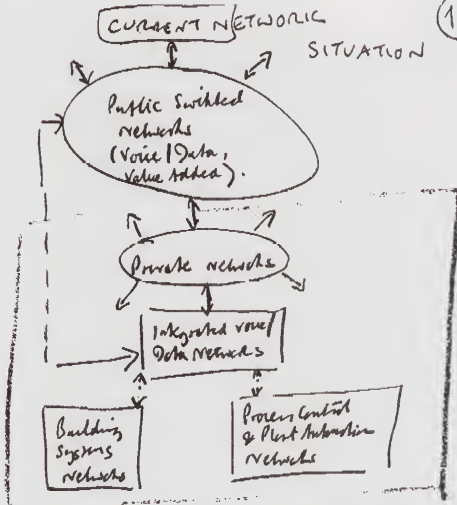 CURRENT NETWORK
1
SITUATION
Public Switched
networks
(Voice/Data,
Value Added).
Private networks
Integrated voice/
Data Networks
Building
Systems
Networks
Process Control
& Plant Automation
Networks